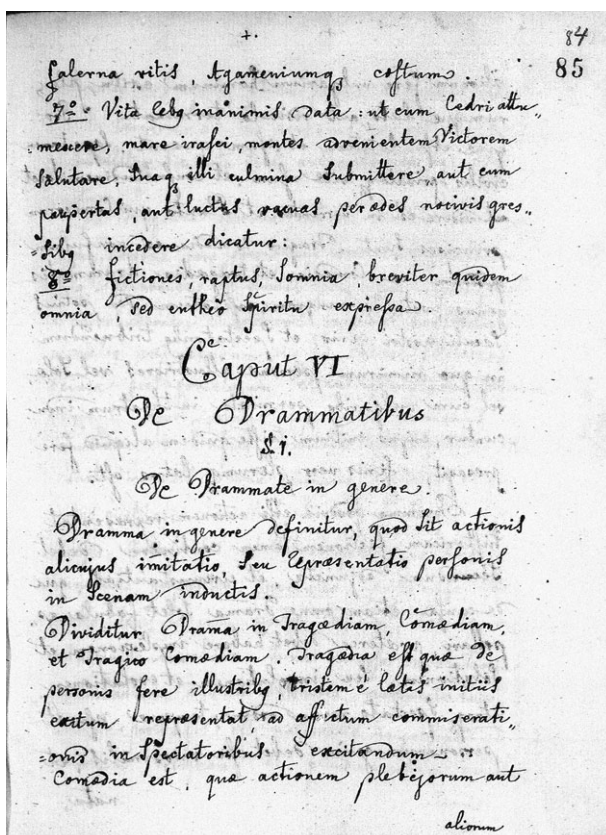 +.
84
85
falerna vitis, Agameniumqꝫ costum.
7º. Vita rebꝫ inanimis data: ut cum Cedri attu„
mescere, mare irasci, montes advenientem Victorem
salutare, suaqꝫ illi culmina submittere aut cum
paupertas, aut luctus vacuas per ædes nocivis gres„
=sibꝫ incedere dicatur:
8º fictiones, raptus, somnia, breviter quidem
omnia, sed entheo Spiritu expressa.
Caput VI
De Drammatibus
§ 1.
De Drammate in genere.
Dramma in genere definitur, quod sit actionis
alicujus imitatio, seu repræsentatio personis
in scenam inductis.
Dividitur Drama in Tragædiam, Comædiam,
et Tragico Comædiam. Tragædia est quæ de
personis fere illustribꝫ, tristem é lætis initiis
exitum repræsentat, ad affectum commiserati„
=onis in spectatoribus excitandum.
Comædia est, quæ actionem plebejorum aut
aliorum